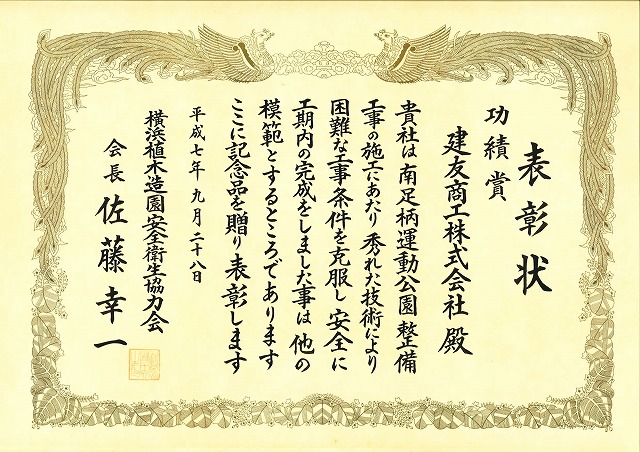 表彰状
功績賞
建友商工株式会社 殿
貴社は南足柄運動公園整備
工事の施工にあたり秀れた技術により
困難な工事条件を克服し安全に
工期内の完成をしました事は他の
模範とするところであります
ここに記念品を贈り表彰します
平成七年九月二十八日
横浜植木造園安全衛生協力会
会長 佐藤幸一